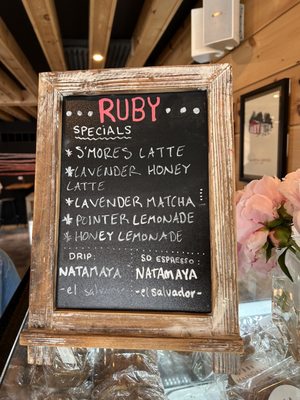 RUBY
SPECIALS
* S'MORES LATTE
* LAVENDER HONEY
LATTE
* LAVENDER MATCHA
* POINTER LEMONADE
* HONEY LEMONADE
DRIP:
NATAMAYA
-el salvador-
SO ESPRESSO:
NATAMAYA
-el salvador-